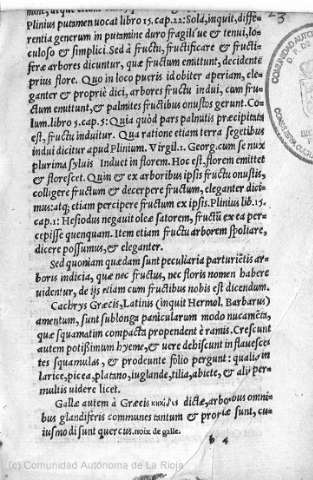 Plinius putamen uocat libro 15. cap. 22: Sola, inquit, diffe-
rentia generum in putamine duro fragili´ue et tenui, lo-
culoso & simplici. Sed à fructu, fructificare & fructi-
feræ arbores dicuntur, quæ fructum emittunt, decidente
prius flore. Quo in loco pueris id obiter aperiam, ele-
ganter & propriè dici, arbores fructu indui, cum fru-
ctum emittunt, & palmites fructibus onustos gerunt. Co-
lum. libro 5. cap. 5: Quia quòd pars palmitis præcipitata
est, fructu induitur. Qua ratione etiam terra segetibus
indui dicitur apud Plinium. Virgil. 1. Georg. cum se nux
plurima syluis Induet in florem. Hoc est, florem emittet
& florescet. Quin & ex arboribus ipsis fructu onustis,
colligere fructum & decerpere fructum, eleganter dici-
mus: atq; etiam percipere fructum ex ipsis. Plinius lib. 15.
cap. 1: Hesiodus negauit oleæ satorem, fructū ex ea per-
cepisse quenquam. Item etiam fructu arborem spoliare,
dicere possumus, & eleganter.
Sed quoniam quædam sunt peculiaria parturiētis ar-
boris indicia, quæ nec fructus, nec floris nomen habere
uidentur, de ijs etiam cum fructibus nobis est dicendum.
Cachrys Græcis, Latinis (inquit Hermol. Barbarus)
amentum, sunt sublonga panicularum modo nucamēta,
quæ squamatim compacta propendent è ramis. Crescunt
autem potißimum hyeme, & uere debiscunt in flauesces
tes squamulas, & prodeunte folio pergunt: qualia in
larice, picea, platano, iuglande, tilia, abiete, & alijs per-
multis uidere licet.
Gallæ autem à Græcis dictæ, arboribus omni-
bus glandiferis communes tantum & propriæ sunt, cu-
iusmodi sunt quercus. noix de galle.
b 4
(c) Comunidad Autónoma de La Rioja